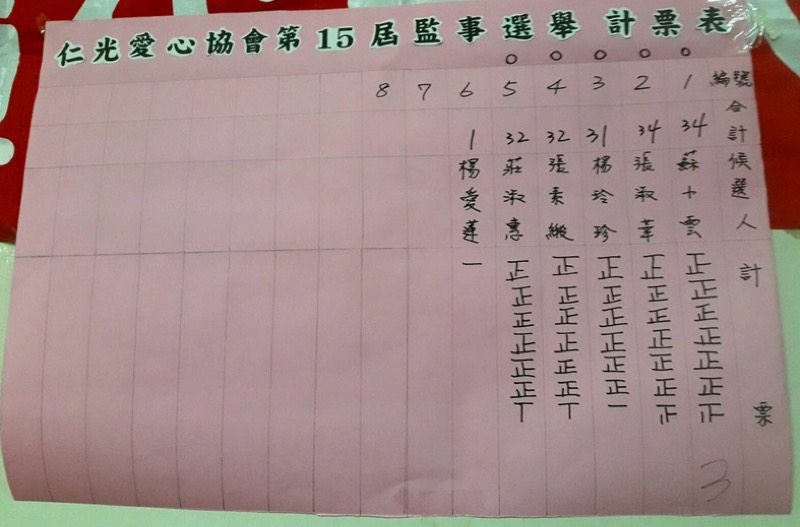 仁光愛心協會第15屆監事選舉計票表
編號 1 2 3 4 5 6 7 8
合計 34 34 31 32 32 1
候選人 蘇十雲 張淑華 楊玲珍 張素緞 莊淑惠 楊愛蓮
計票
正正正正正正正
正正正正正正正
正正正正正正一
正正正正正正丅
正正正正正正丅
一
3